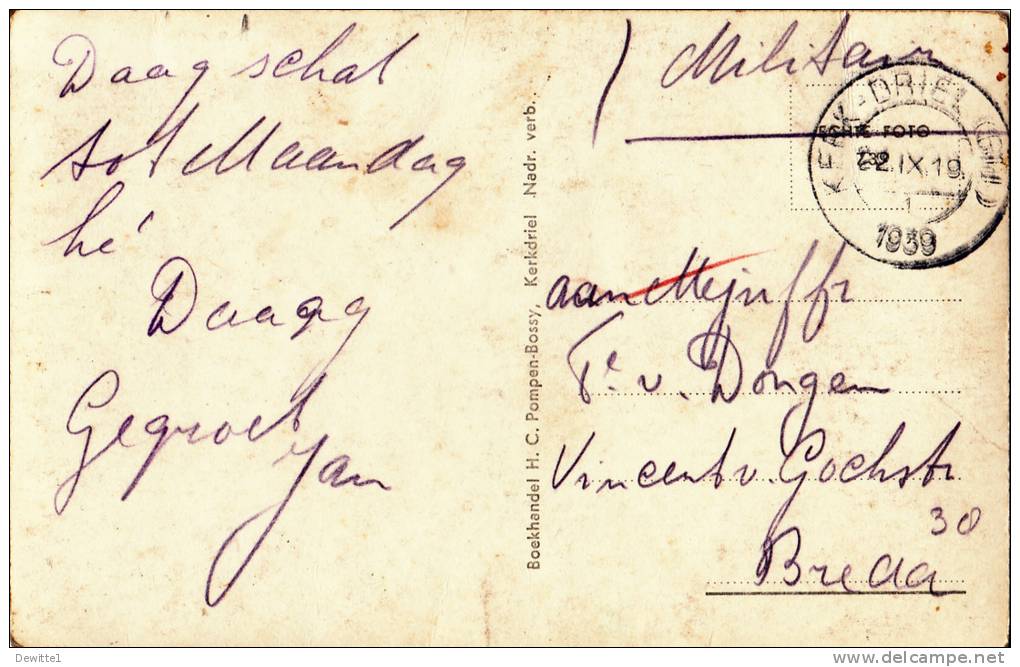 Daag schat
tot Maandag
hé
Daagg
Gegroet
Jan
Boekhandel H. C. Pompen-Bossy, Kerkdriel Nadr. verb.
Militair
ECHTE FOTO
KERK-DRIEL (Geld.)
22.IX.19
1939
aan Mejuffr
v. Dongen
Vincent v. Gochstr
30
Breda
Dewittel
www.delcampe.net